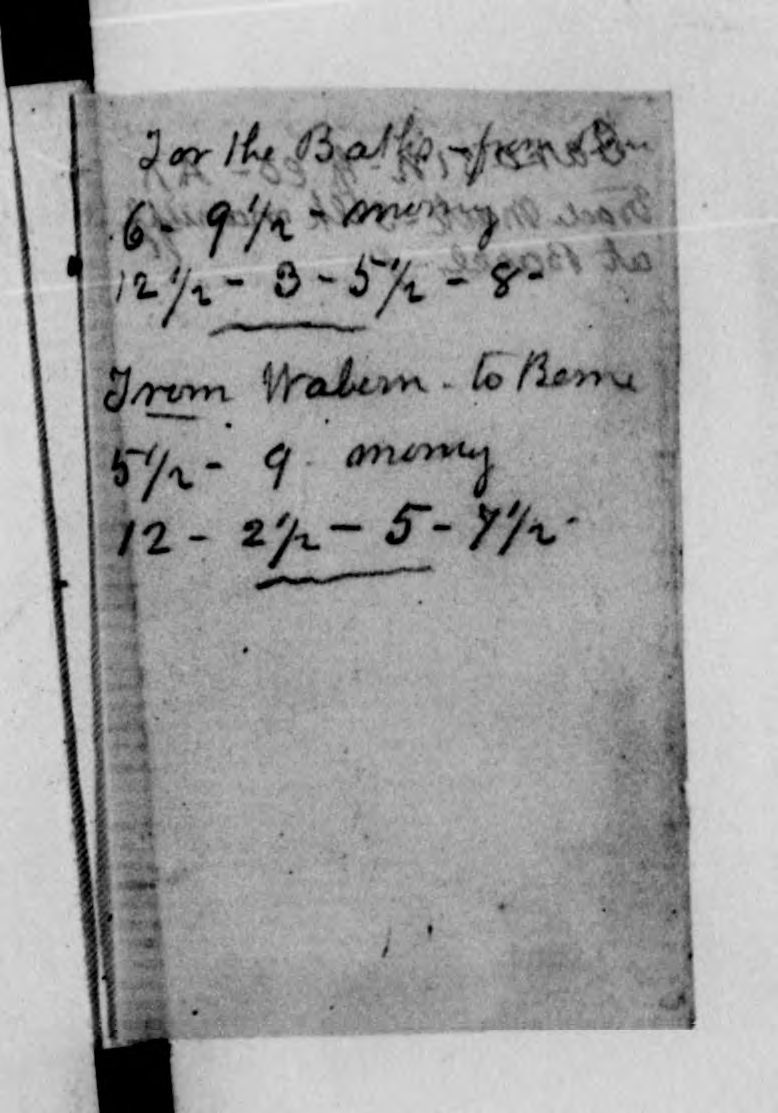 For the Baths - from
6 - 9 1/2 - morning
12 1/2 - 3 - 5 1/2 - 8 -
From Wabern - to Berne
5 1/2 - 9 morning
12 - 2 1/2 - 5 - 7 1/2 -